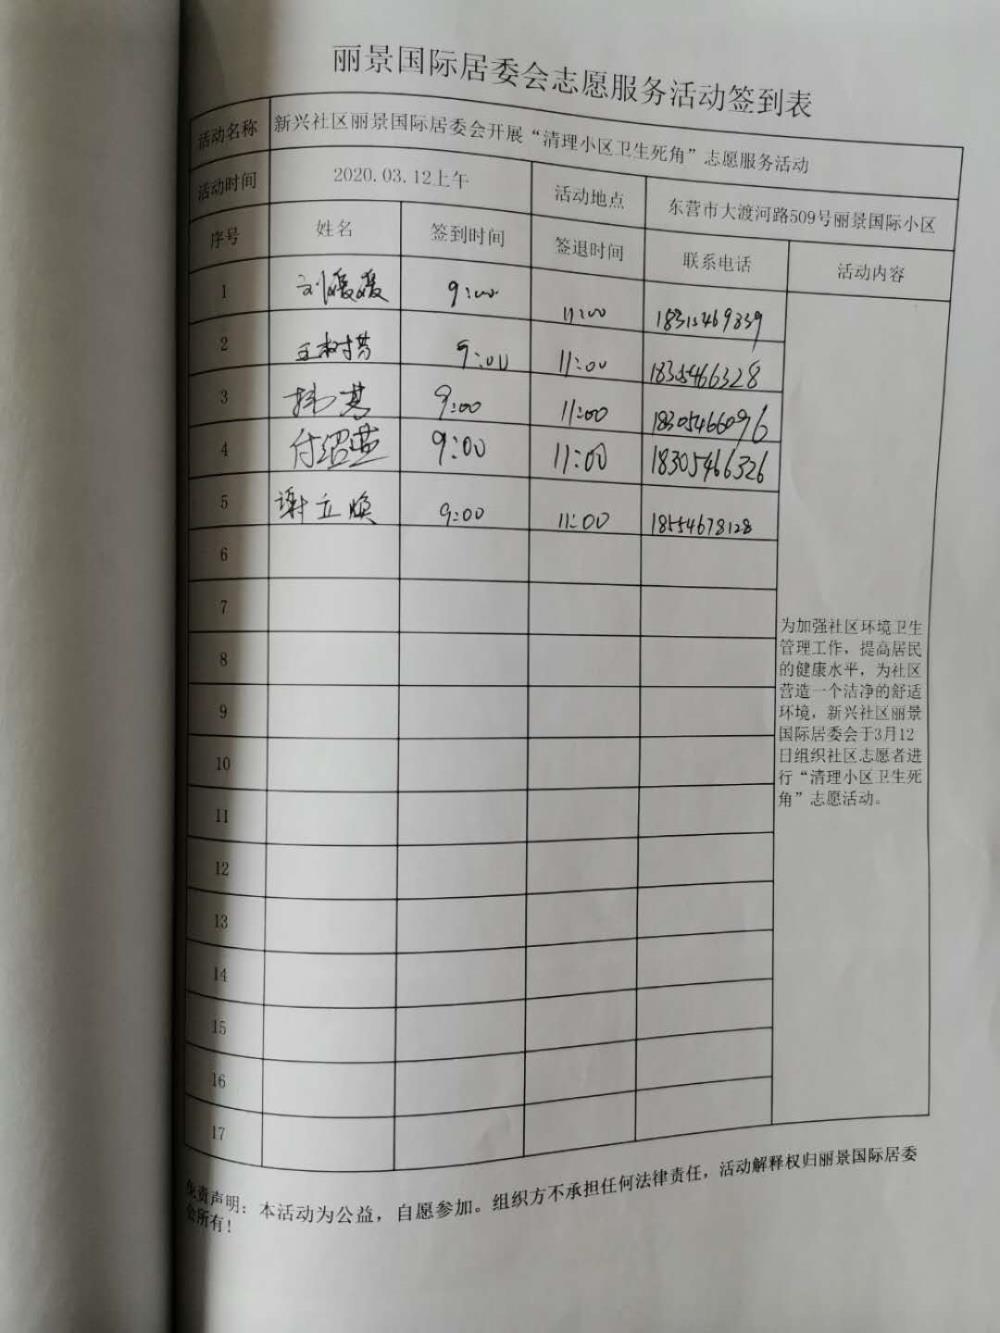 丽景国际居委会志愿服务活动签到表
活动名称 新兴社区丽景国际居委会开展“清理小区卫生死角”志愿服务活动
活动时间 2020.03.12上午 活动地点 东营市大渡河路509号丽景国际小区
序号 姓名 签到时间 签退时间 联系电话 活动内容
1 刘媛媛 9:00 11:00
2 9:00 11:00 18305466328
3 9:00 11:00 18305466096
4 付绍燕 9:00 11:00 18305466326
5 谢立焕 9:00 11:00 18554678128
6
7
8
9
10
11
12
13
14
15
16
17
为加强社区环境卫生
管理工作，提高居民
的健康水平，为社区
营造一个洁净的舒适
环境，新兴社区丽景
国际居委会于3月12
日组织社区志愿者进
行“清理小区卫生死
角”志愿活动。
免责声明：本活动为公益，自愿参加。组织方不承担任何法律责任，活动解释权归丽景国际居委
会所有！